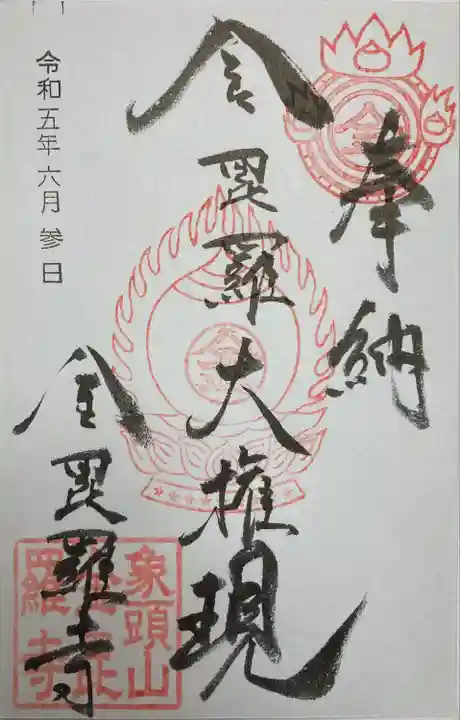 奉納
金毘羅大権現
金毘羅寺
令和五年六月参日
象頭山
金毘
羅寺